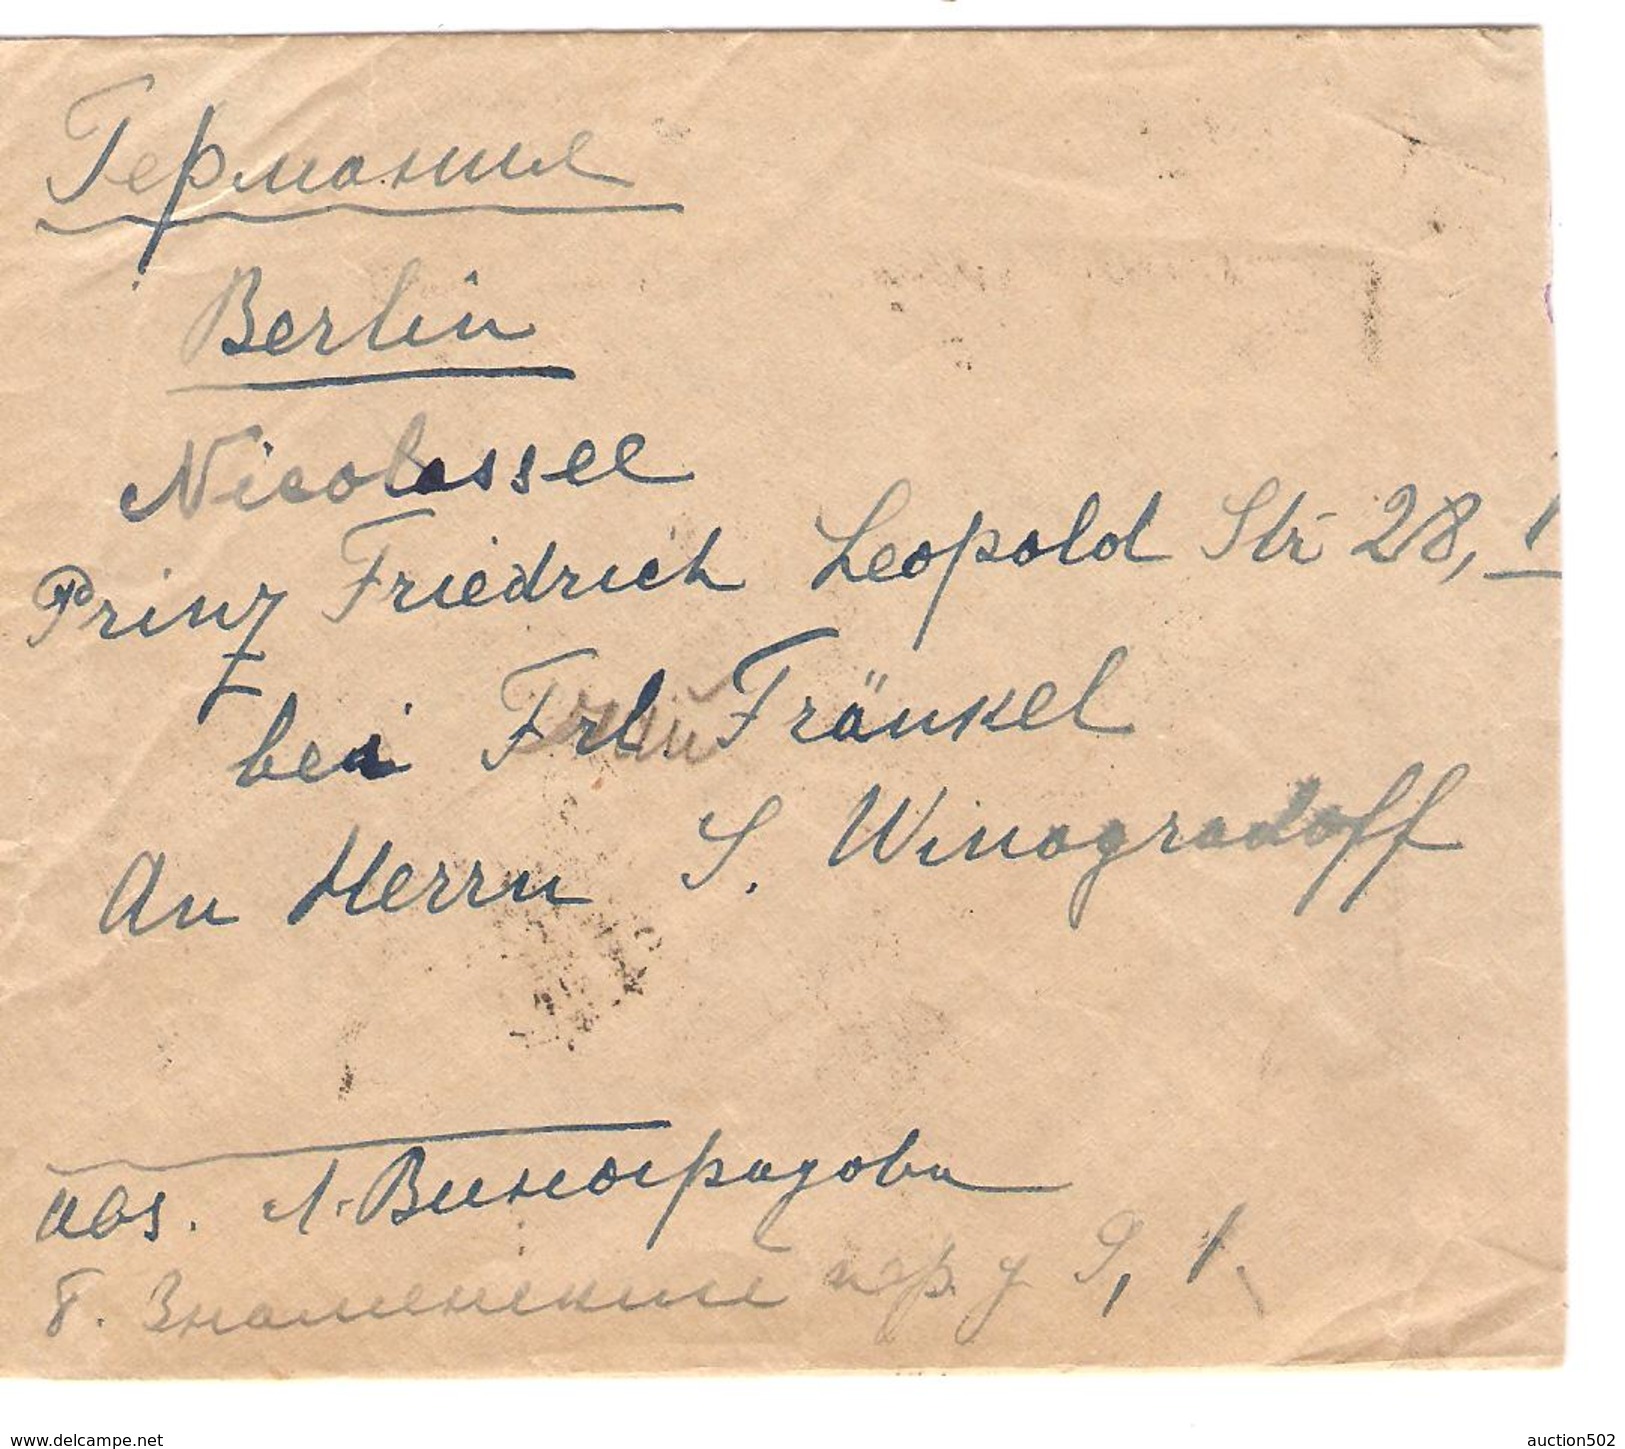 Германия
Berlin
Nicolassee
Prinz Friedrich Leopold Str 28, I
bei Frl. Fränkel
An Herrn S. Winogradoff
Abs. Л. Виноградова
Б. Знаменский пер. д 9, 1
www.delcampe.net
auction502